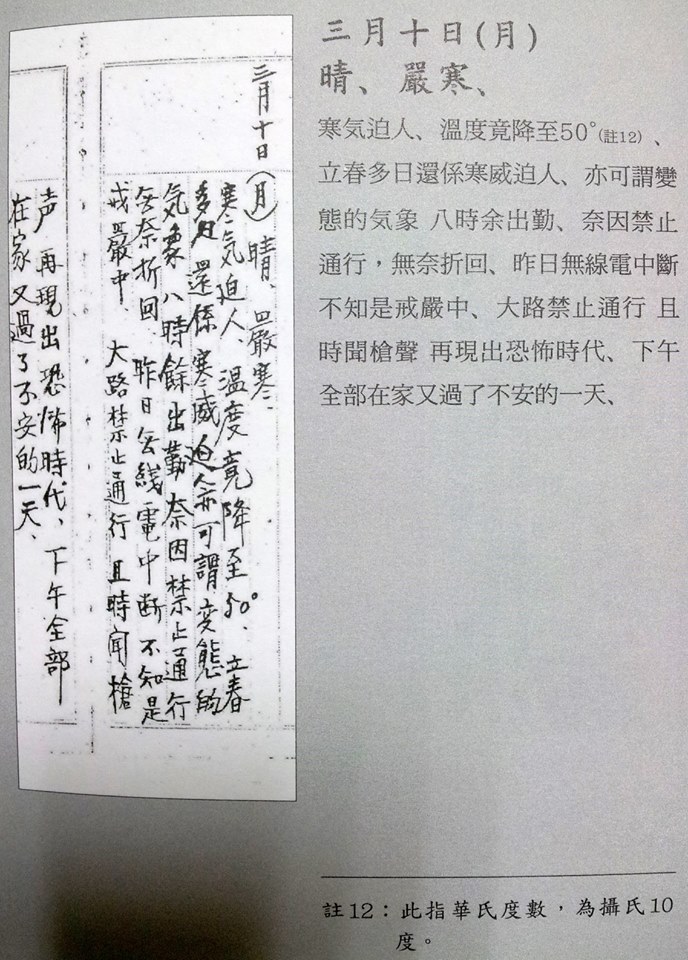 三月十日（月）晴、嚴寒、
寒気迫人、溫度竟降至50°、立春
多日還係寒威迫人亦可謂変態的
気象八時餘出勤奈因禁止通行
無奈折回、昨日無線電中断不知是
戒嚴中、大路禁止通行且時聞槍
声再現出恐怖時代、下午全部
在家又過了不安的一天、
三月十日(月)
晴、嚴寒、
寒気迫人、溫度竟降至50°(註12)、
立春多日還係寒威迫人、亦可謂變
態的気象 八時余出勤、奈因禁止
通行，無奈折回、昨日無線電中斷
不知是戒嚴中、大路禁止通行 且
時聞槍聲 再現出恐怖時代、下午
全部在家又過了不安的一天、
註12：此指華氏度數，為攝氏10
度。